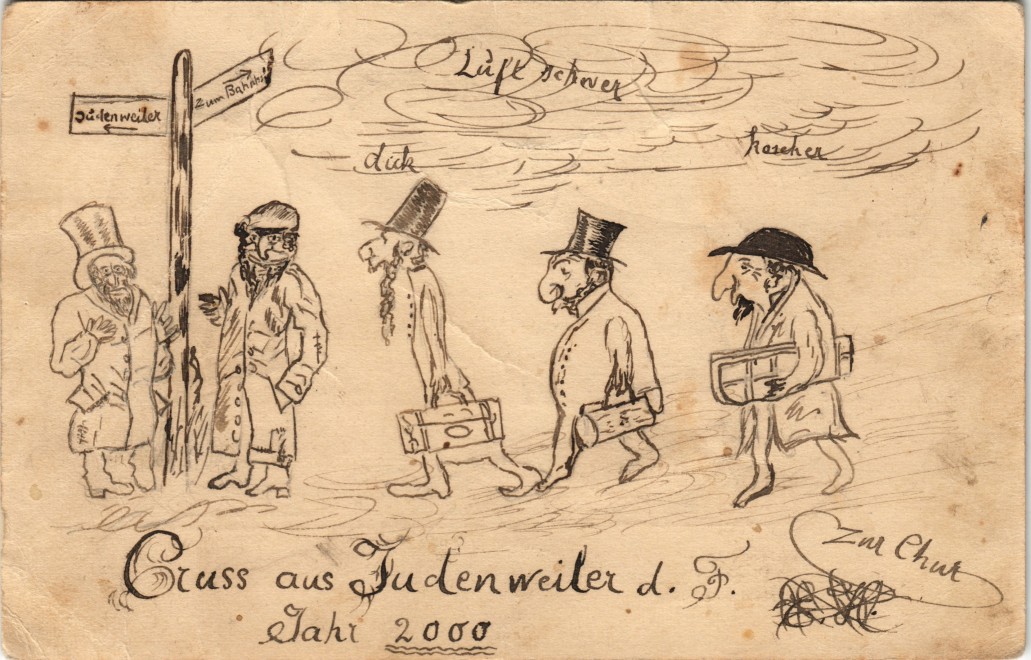 Judenweiler
Zum Bahnhof
Luft schwer
dick
koscher
Gruss aus Judenweiler d. F.
Jahr 2000
Zur Chur